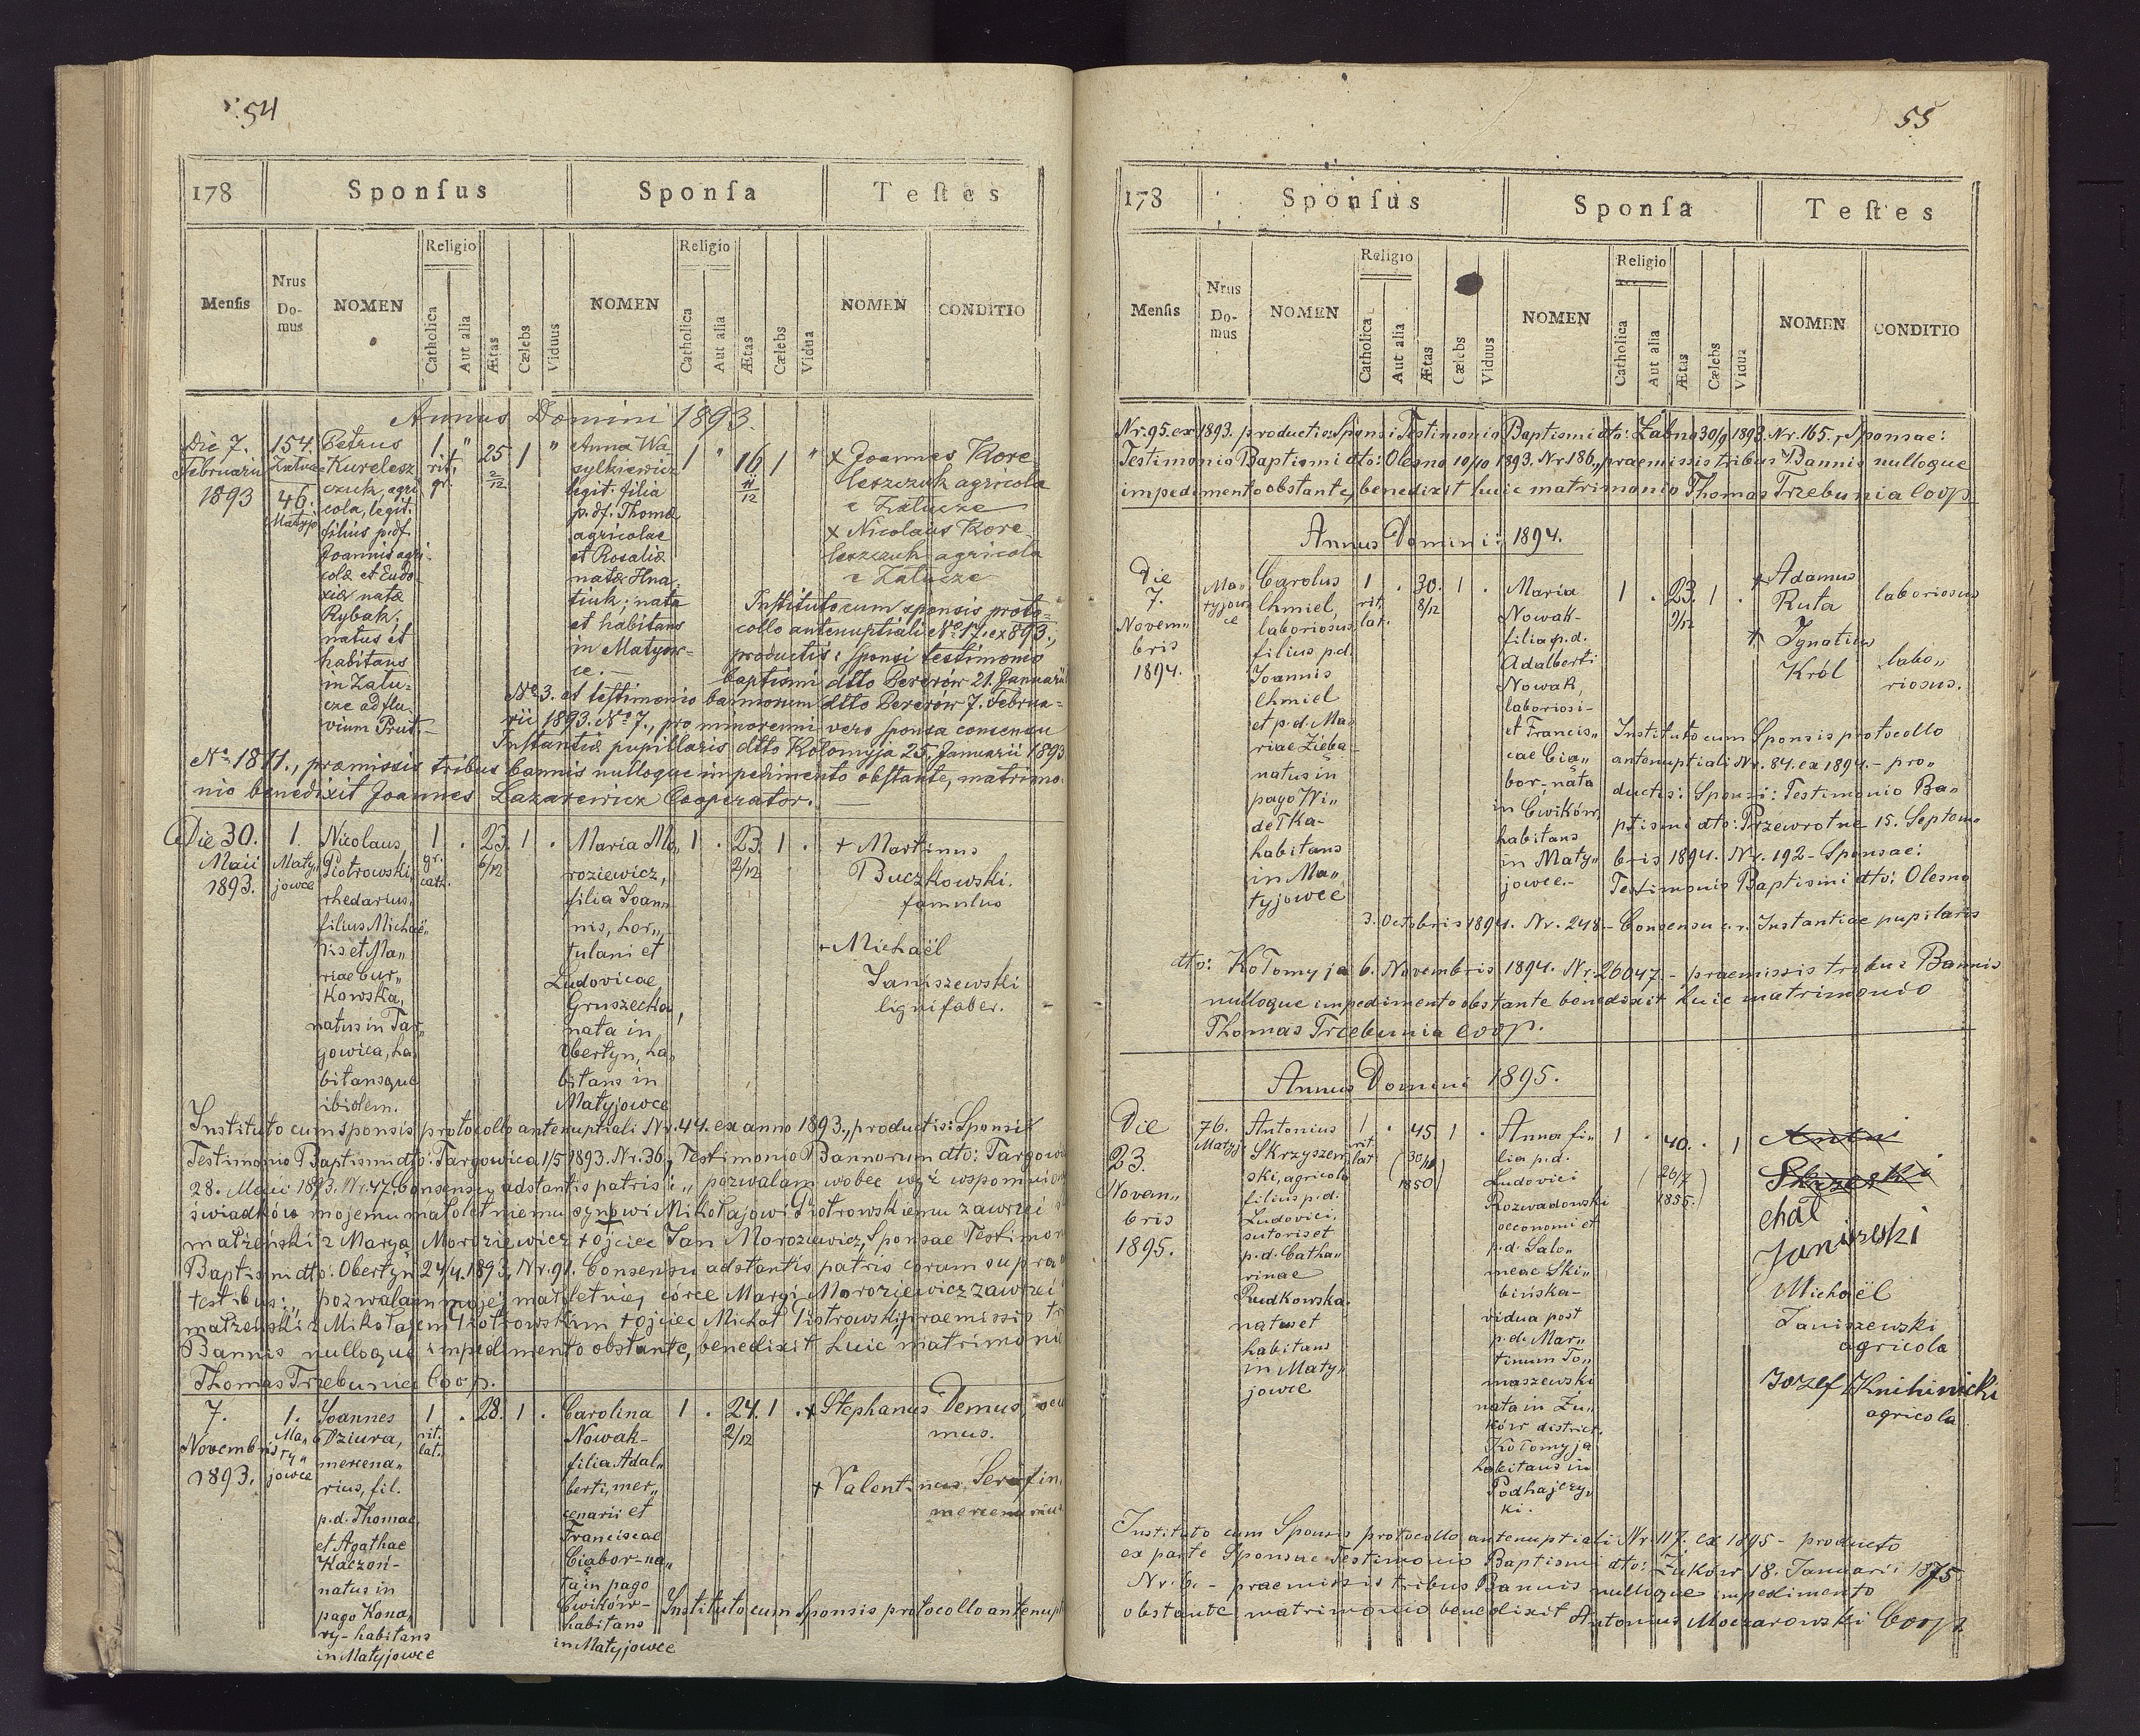 54
178 Sponſus Sponſa Teſtes
Menſis Nrus Domus NOMEN Religio Catholica Aut alia Ætas Cælebs Viduus NOMEN Religio Catholica Aut alia Ætas Cælebs Vidua NOMEN CONDITIO
Annus Domini 1893.
Die 7.
Februarii
1893
154.
46.
Petrus
Kurelesz
czuk, agri
cola, legit.
filius p.df.
Joannis agri-
colæ et Eudo-
xiæ natæ
Rybak;
natus et
habitans
in Zału-
cze ad flu-
vium Prut.-
1 " 25 1 "
rit. 2/12
gr.
Anna Wa-
sylkiewicz
legit. filia
p.df. Thomæ
agricolae
et Rosaliæ
natæ Hna-
tiuk; nata
et habitans
in Matyow-
ce.-
1 " 16 1 "
11/12
x Joannes Kore-
leszczuk agricola
z Załucze
x Nicolaus Kore-
leszczuk agricola
z Załucze
Instituto cum sponsis proto-
collo antenuptiali No 17. ex 893.,
productis: Sponsi testimonio
baptismi dtto Pererów 21. Januarii
No 3. et testimonio bannorum dtto Pererów 7. Februa-
rii 1893. No 7., pro minorenni vero sponsa consensu
Instantiæ pupillaris dtto Kołomyja 25. Januarii 1893
No 1811., præmissis tribus bannis nulloque impedimento obstante, matrimo-
nio benedixit Joannes Łazarewicz Cooperator.
Die 30.
Maii
1893.
1.
Maty"
jowce
Nicolaus
Piotrowski,
rhedarius,
filius Michaë"
lis et Ma"
riae Cur"
kowska,
natus in Tar"
gowica, ha"
bitansque
ibidem.
1 . 23. 1 .
gr. 6/12
cath.
Maria Mo"
roziewicz,
filia Joan"
nis, hor"
tulani et
Ludovicae
Gruszecka,
nata in
Obertyn, ha"
bitans in
Matyjowce
1 . 23. 1 .
2/12
+ Martinus
Buczkowski.
famulus
+ Michaël
Janiszewski
lignifaber.
Instituto cum sponsis protocollo antenuptiali Nr. 44. ex anno 1893., productis: Sponsi:
Testimonio Baptismi dto: Targowica 1/5 1893. Nr. 36., Testimonio Bannorum dto: Targowi
28. Maii 1893. Nr. 47. Consensu adstantis patris: „pozwalam wobec wyż wspomnion
świadków mojemu małoletniemu synowi Mikołajowi Piotrowskiemu zawrzeć
małżeński z Maryą Moroziewicz + ojciec Jan Moroziewicz, Sponsae Testimon
Baptismi dto: Obertyn 24/4. 1893. Nr. 91. Consensu adstantis patris coram supra
testibus: „pozwalam mojej małoletniej córce Maryi Moroziewicz zawrzeć
małżeński z Mikołajem Piotrowskim + ojciec Michał Piotrowski, praemissis tr
Bannis nulloque impedimento obstante, benedixit huic matrimonio
Thomas Trzebunia Coop.
7.
Novembris
1893.
1.
Ma"
ty"
jowce
Joannes
Dziura,
mercena"
rius, fil.
p.d. Thomae
et Agathae
Kaczoń-
natus in
pago Kona"
ry- habitans
in Matyjowce
1 . 28. 1 .
rit.
lat.
Carolina
Nowak-
filia Adal"
berti, mer"
cenarii et
Franciscae
Ciąbor- na"
ta in pago
Ćwików-
habitans
in Matyjowce
1 . 24. 1 .
2/12
x Stephanus Demus,
mus.
+ Valentinus Serafin,
mercenarius
Instituto cum Sponsis protocollo antenupt
55
178 Sponſus Sponſa Teſtes
Menſis Nrus Domus NOMEN Religio Catholica Aut alia Ætas Cælebs Viduus NOMEN Religio Catholica Aut alia Ætas Cælebs Vidua NOMEN CONDITIO
Nr. 95. ex 1893. productis: Sponsi Testimonio Baptismi dto: Żabno 30/9 1893. Nr. 165., Sponsae:
Testimonio Baptismi dto: Olesno 10/10 1893. Nr 186., praemissis tribus Bannis nulloque
impedimento obstante, benedixit huic matrimonio Thomas Trzebunia Coop.
Annus Domini: 1894.
Die
7.
Novem"
bris
1894.
Ma"
tyjow"
ce
Carolus
Chmiel,
laboriosus,
filius p.d.
Joannis
Chmiel
et p.d. Ma"
riae Zięba-
natus in
pago Wi"
dełka-
habitans
in Ma"
tyjowce
1 . 30. 1 .
rit. 8/12
lat.
Maria
Nowak-
filia p.d.
Adalberti
Nowak,
laboriosi-
et Francis"
cae Cią"
bor- nata
in Ćwików,
habitans
in Maty"
jowce.-
1 . 23. 1 .
9/12
+ Adamus
Ruta laboriosus
+ Ignatius
Król labo"
riosus.
Instituto cum Sponsis protocollo
antenuptiali Nr. 84. ex 1894.- pro"
ductis: Sponsi: Testimonio Ba"
ptismi dto: Przewrotne 15. Septem"
bris 1894. Nr. 192- Sponsae:
Testimonio Baptismi dto: Olesno
3. Octobris 1894. Nr. 248- Consensu c. r. Instantiae pupilaris
dto: Kołomyja 6. Novembris 1894. Nr. 26047.- praemissis tribus Bannis
nulloque impedimento obstante benedixit huic matrimonio
Thomas Trzebunia coop.
Annus Domini 1895.
Die
23.
Novem"
bris
1895.
76.
Matyj
Antonius
Skrzyszew
ski, agricola
filius p.d.
Ludovici,
sutoris et
p.d. Catha"
rinae
Rudkowska
natus et
habitans
in Maty"
jowce
1 . 45 1 .
rit.
lat (30/10
1850)
Anna fi"
lia p.d.
Ludovici
Rozwadowski
oeconomi et
p.d. Salo"
meae Ski"
bińska-
vidua post
p.d. Mar"
tinum To"
maszewski
nata in Żu"
ków district.
Kołomyja
habitans in
Podhajczy"
ki.
1 . 40. . 1
(26/7
1855.)
chał
Janiszeski
Michaël
Janiszewski
agricola
Jozef Knihinicki
agricola
Instituto cum Sponsis protocollo antenuptiali Nr. 117. ex 1895- producto
ex parte Sponsae Testimonio Baptismi dto: Żuków 18. Januarii 1875
Nr. 6.- praemissis tribus Bannis nulloque impedimento
obstante matrimonio benedixit Antonius Moczarowski Coop.